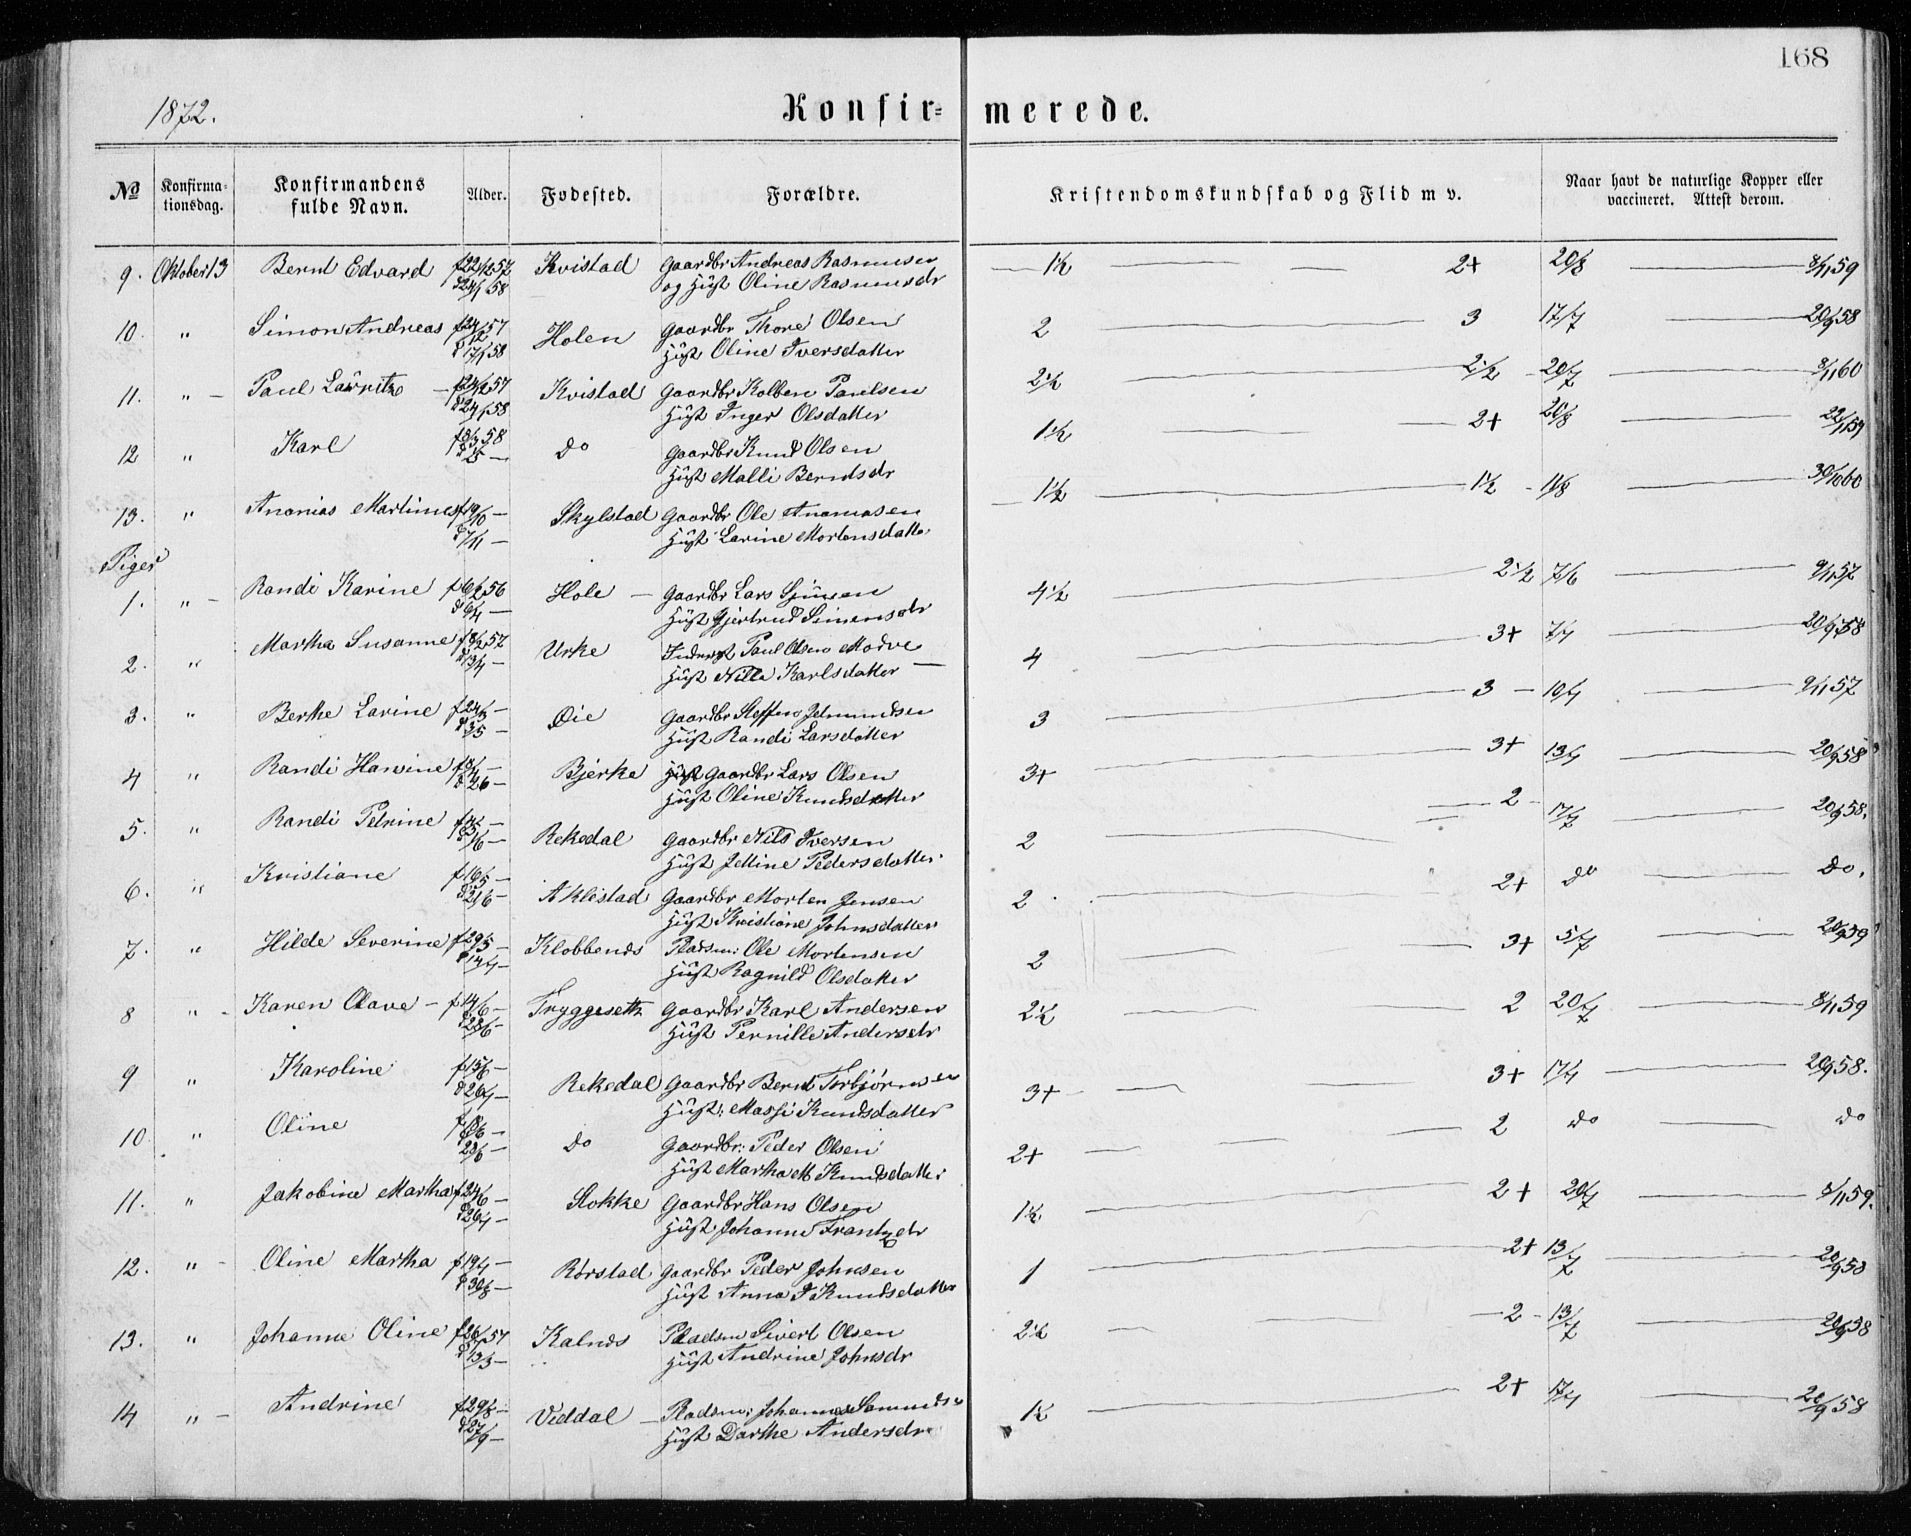 168
1872.
Konfir= merede.
No Konfirma-tionsdag. Konfirmandens fulde Navn. Alder. Fødested. Forældre. Kristendomskundskab og Flid m v. Naar havt de naturlige Kopper eller vaccineret. Attest derom.
9. Oktober 13 Bernt Edvard f 22/12 57 Kvistad Gaardbr Andreas Rasmussen 1½ 2+ 20/8 8/11 59
d 24/1 58 og Hust Oline Rasmusdr
10. " Simon Andreas f 24/12 57 Holen Gaardbr Thore Olsen 2 3 17/7 20/9 58
d 17/1 58 Hust Oline Iversdatter
11. " Paul Lauritz f 24/12 57 Kvistad Gaardbr Kolben Paulsen 2½ 2½ 20/7 8/11 60
d 24/1 58 Hust Inger Olsdatter
12 " Karl 58 do Gaardbr Knud Olsen 1½ 2+ 20/8 22/11 59
Hust Malli Berntsdr
13. " Ananias Martinus f 19/10 Skylstad Gaardbr Ole Ananiasen 1½ 1½ 11/8 30/10 60
d 7/11 Hust Larine Mortensdatter
Piger
1. " Randi Karine f 6/12 56 Hole Gaardbr Lars 4½ 2½ 7/6 9/11 57
Hust Gjertrud Simensdr
2. " Martha Susanne 57 Urke Inderst Paul Olsen Modve 4 3+ 7/7 20/9 58
d 13/4 Hust Nilla Karlsdatter
3. " Berthe Larine f 24/3 Øie Gaardbr Steffen Jetmundsen 3 3 10/7 9/11 57
d 3/5 Hust Randi Larsdatter
4 " Randi Hansine Bjerke Gaardbr Lars Olsen 3+ 3+ 13/7 20/9 58
Hust Oline Knudsdatter
5. " Randi Petrine Rekedal Gaardbr Nils Iversen 2 2 17/7 20/9 58.
Hust Jelline Pedersdatter
6. " Kristiane f 16/5 Aklestad Gaardbr Morten Jensen 2 2+ do do.
d 21/6 Hust Kristiane Johnsdatter
7. " Hilde Severine f 29/5 Klobbenes Pladsm: Ole Mortensen 2 3+ 5/7 20/9 59
d 14/7 Hust Ragnild Olsdatter
8 " Karen Olave f 14/6 Tryggesett Gaardbr Karl Andersen 2½ 2 20/7 8/11 59
d 28/6 Hust Pernille Andersdr
9 " Karoline f 15/6 Rekedal Gaardbr Bernt Torbjørnsen 3+ 3+ 17/7 20/9 58.
d 26/7 Hust: Massi Knudsdatter
10. " Oline do Gaardbr: Peder Olsen 2+ 2 do do
d 28/6 Hust Martha M Knudsdatter
11. " Jakobine Martha f 24/6 Stokke Gaardbr Hans Olsen 1½ 2+ 20/7 8/11 59.
d 26/7 Hust Johanne Frantzdr
12. " Oline Martha f 19/7 Rörstad Gaardbr Peder Johnsen 1 2+ 13/7 20/9 58
d 30/8 Hust Anna I Knudsdatter
13. " Johanne Oline 57 Kalnes Pladsm Sivert Olsen 2½ 2 13/7 20/9 58
d 13/3 Hust Andrine Johnsdr
14 " Andrine f 29/8 Viddal Pladsm: Johannes 1½ 2+ 17/7 20/9 58
d 27/9 Hust Dorthe Andersdr